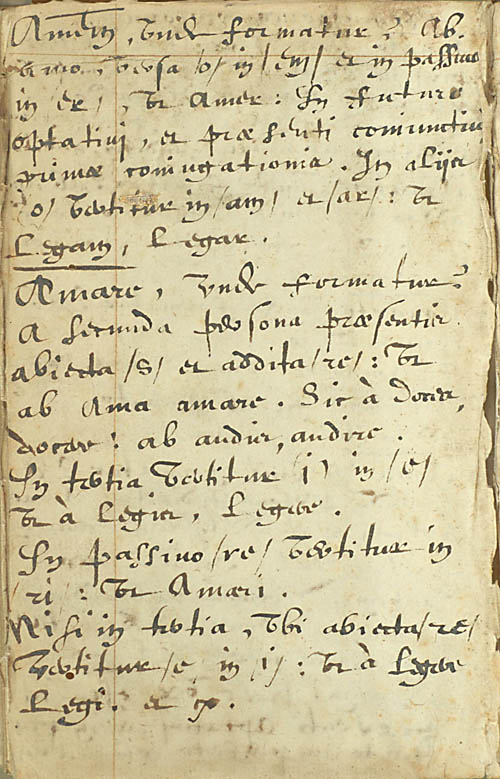 Amem, vnde formatur? Ab.
amo, versa /o/ in /em/ et in passiuo
in /er/, vt Amer: In futuro
optatiui, et præsenti coniunctiui
primæ coniugationis. In alijs
/o/ vertitur in /am/ et /ar/: vt
Legam, Legar.
Amare, vnde formatur?
A secunda persona præsentis
abiecta /s/ et addita /re/: vt
ab Ama amare. Sic à doces,
docere: ab audis, audire.
In tertia vertitur /i/ in /e/
vt à Legis, Legere.
In passiuo /re/ vertitur in
/ri/: vt Amari.
Nisi in tertia, vbi abiecta /re/
vertitur /e/ in /i/: vt à legere
Legi. et